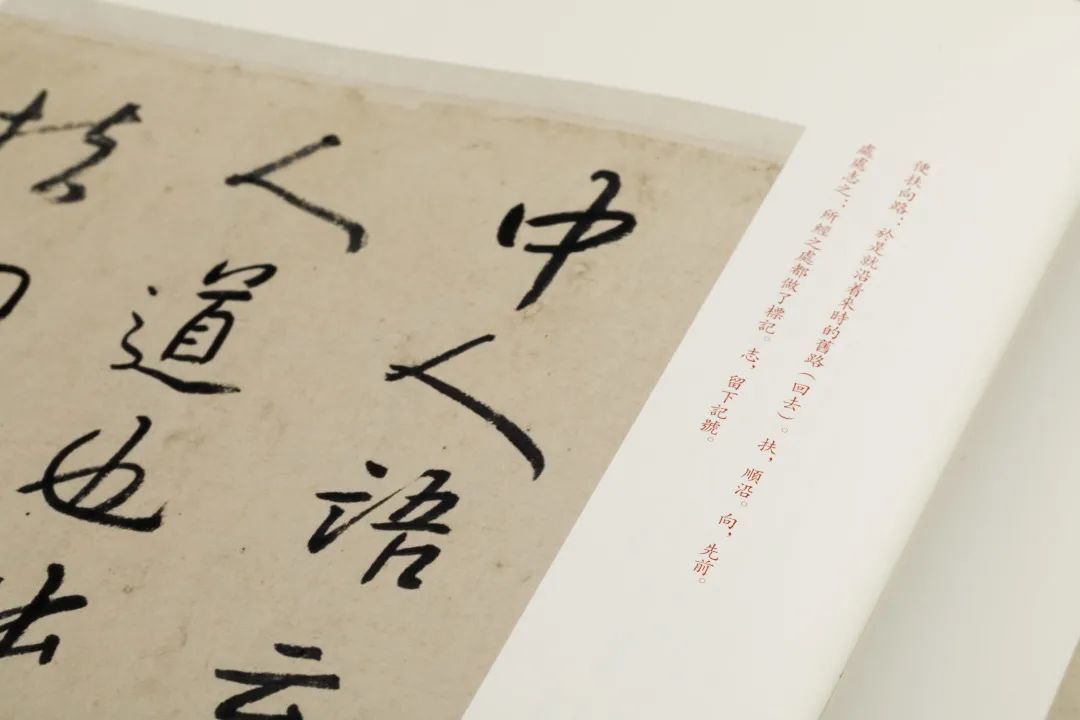 便扶向路：於是就沿着來時的舊路（回去）。扶，順沿。向，先前。
處處志之：所經之處都做了標記。志，留下記號。
中人語云
人道也